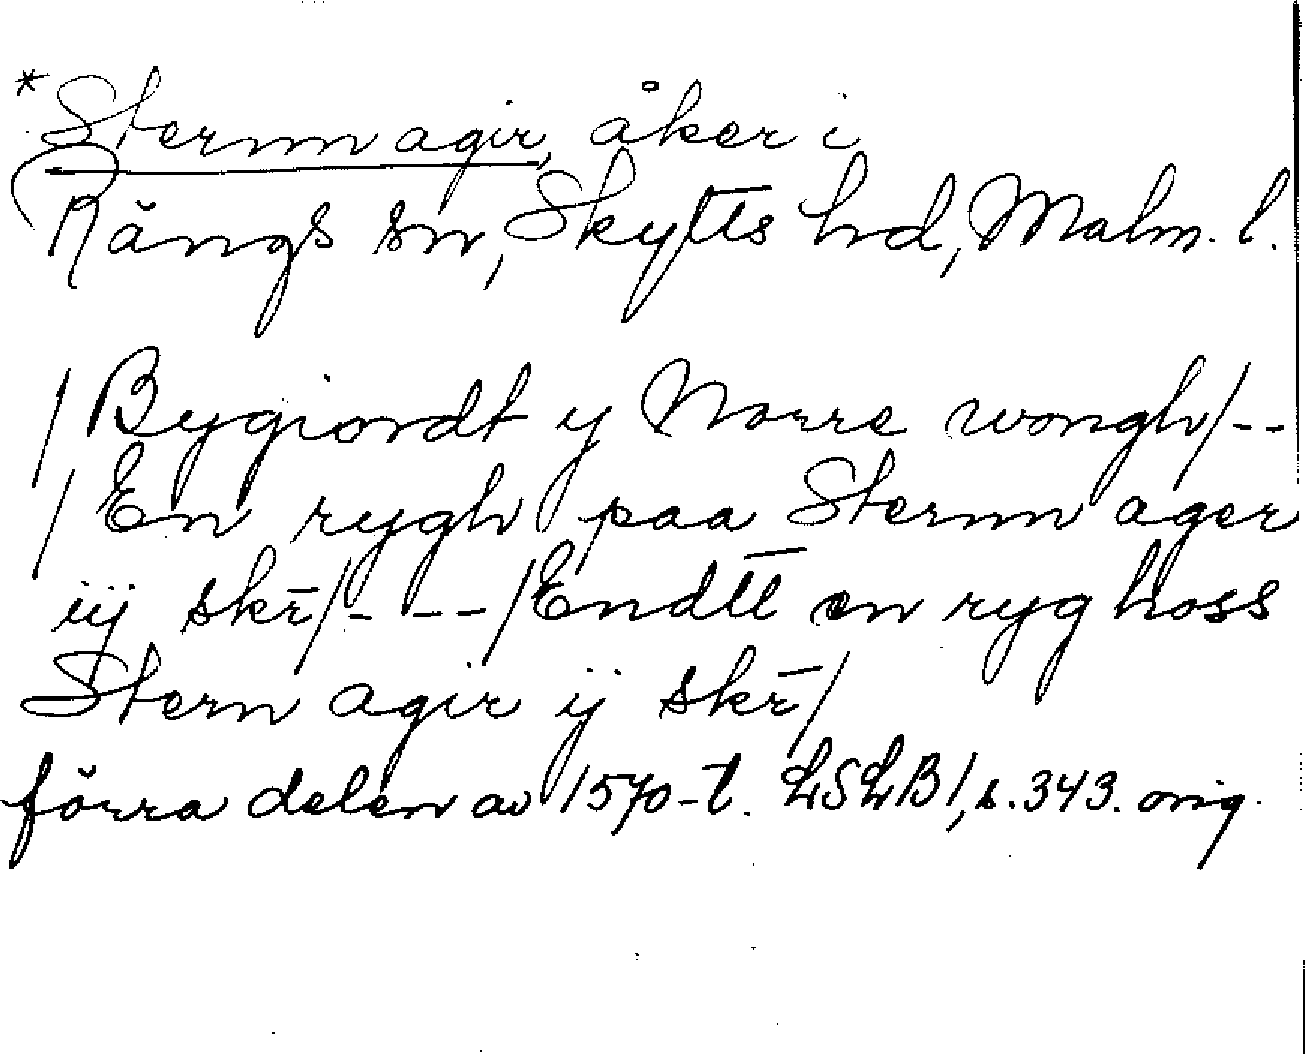 *Sternn agir, åker i
Rängs sn, Skytts hd, Malm. l.
/Bygiordt y Norre wongh/--
/En rygh paa Sternn ager
iij skr̄/- --/Endtt en ryg hoss
Stern agir ij skr̄/
förra delen av 1570-t. LSLB1, s.343. orig.